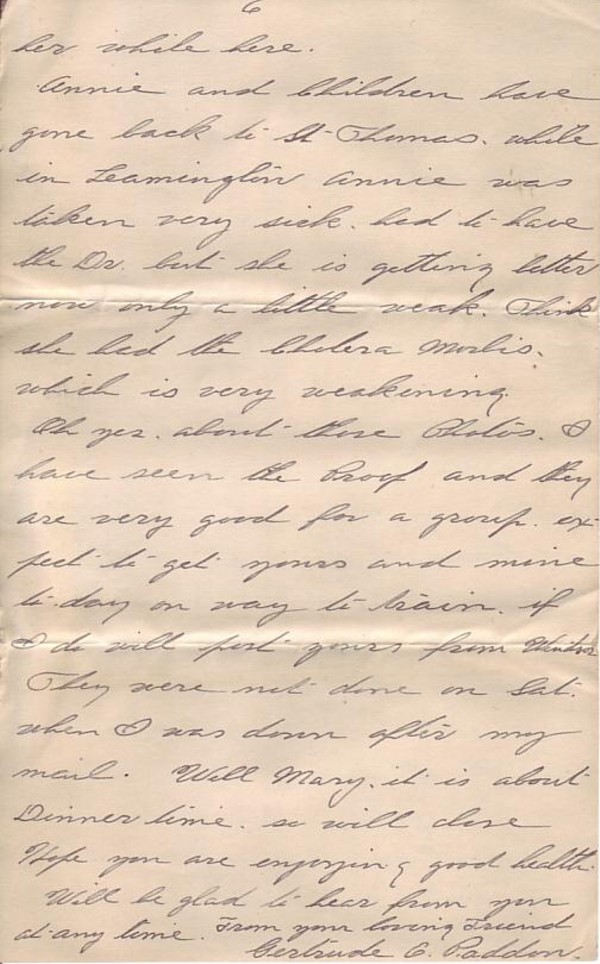 6
her while here.
Annie and Children have
gone back to St Thomas. while
in Leamington Annie was
taken very sick. had to have
the Dr. but she is getting better
now only a little weak. Think
she had the Cholera Morbis.
which is very weakening.
Oh yes. about those Photos. I
have seen the Proof and they
are very good for a group. ex-
pect to get yours and mine
to-day on way to train. if
I do will post yours from Windsor
They were not done on Sat.
when I was down after my
mail. Well Mary. it is about
Dinner time. so will close
Hope you are enjoying good health.
Will be glad to hear from you
at any time. From your loving Friend
Gertrude E. Paddon.